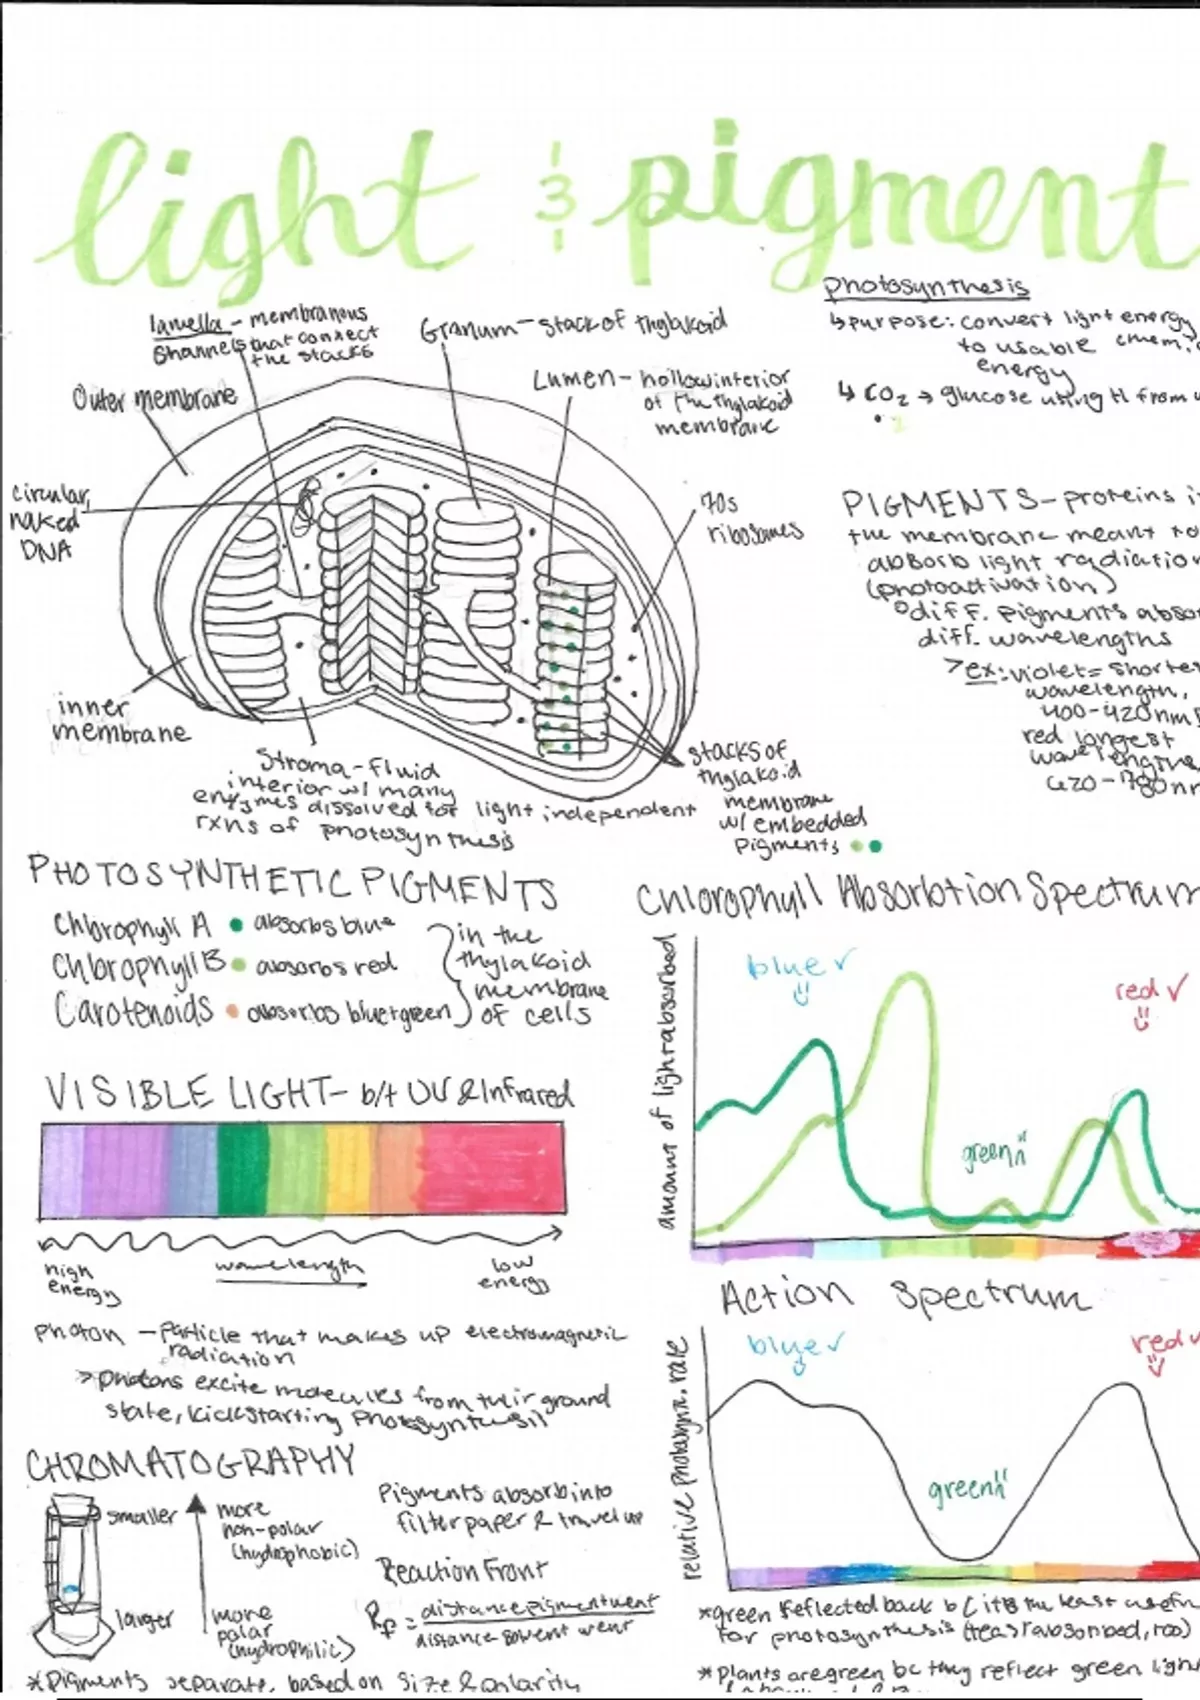 light & pigment
lamella - membranous
channels that connect
the stacks
Granum - stack of thylakoid
Lumen - hollow interior
of the thylakoid
membrane
Outer membrane
circular,
naked
DNA
70s
ribosomes
inner
membrane
Stroma - fluid
interior w/ many
enzymes dissolved for light independent
rxns of photosynthesis
stacks of
thylakoid
membrane
w/ embedded
pigments
photosynthesis
↳ purpose: convert light energy
to usable
energy
↳ CO2 → glucose using H from
PIGMENTS - proteins
the membrane meant to
absorb light radiation
(photoactivation)
diff. pigments
diff. wavelengths
> ex: violet = shorte
wavelength,
400-420nm
red longest
wavelengths
-780
PHOTOSYNTHETIC PIGMENTS
Chlorophyll A • absorbs blue
Chlorophyll B • absorbs red
Carotenoids • absorbs blue+green
in the
thylakoid
membrane
of cells
VISIBLE LIGHT - b/t UV & Infrared
high
energy
wavelength
low
energy
photon - particle that makes up electromagnetic
radiation
> photons excite molecules from their ground
state, kickstarting photosynthesis
CHROMATOGRAPHY
smaller
larger
more
non-polar
(hydrophobic)
more
polar
(hydrophilic)
Pigments absorb into
filter paper & travel up
Reaction Front
Rf = distance pigment went
distance solvent went
*Pigments separate, based on size & polarity
Chlorophyll Absorbtion Spectrum
amount of light absorbed
blue ✓
red ✓
green
Action Spectrum
relative photosyn. rate
blue ✓
red ✓
green
*green reflected back b/c it's the least
for photosynthesis (least absorbed, too)
*plants are green bc they reflect green